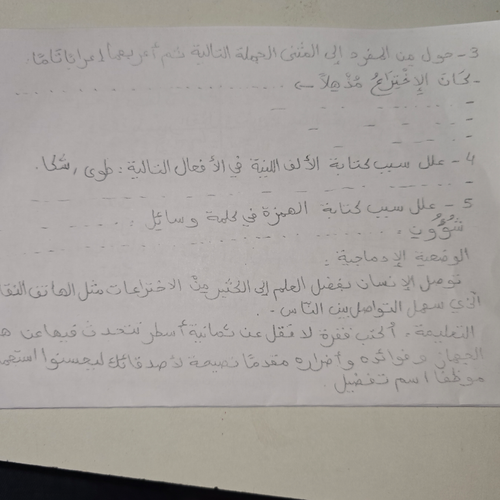 3- حول من المفرد إلى المثنى الجملة التالية ثم أعربهما إعرابا تامًا.
- كَانَ الإِخْتِرَاعُ مُذْهِلاً ←
4- علل سبب كتابة الألف اللينة في الأفعال التالية: طوى, شكا.
5- علل سبب كتابة الهمزة في كلمة وسائل:
شُؤُون:
الوضعية الإدماجية:
توصل الإنسان بفضل العلم إلى الكثير مِنْ الاختراعات مثل الهاتف النقا
الذي سهل التواصل بين الناس.
التعليمة: أكتب فقرة لا تقل عن ثمانية أسطر تتحدث فيها عن ه
الجهاز وفوائده وأضراره مقدمًا نصيحة لأصدقائك ليحسنوا استعما
موظفا اسم تفضيل.